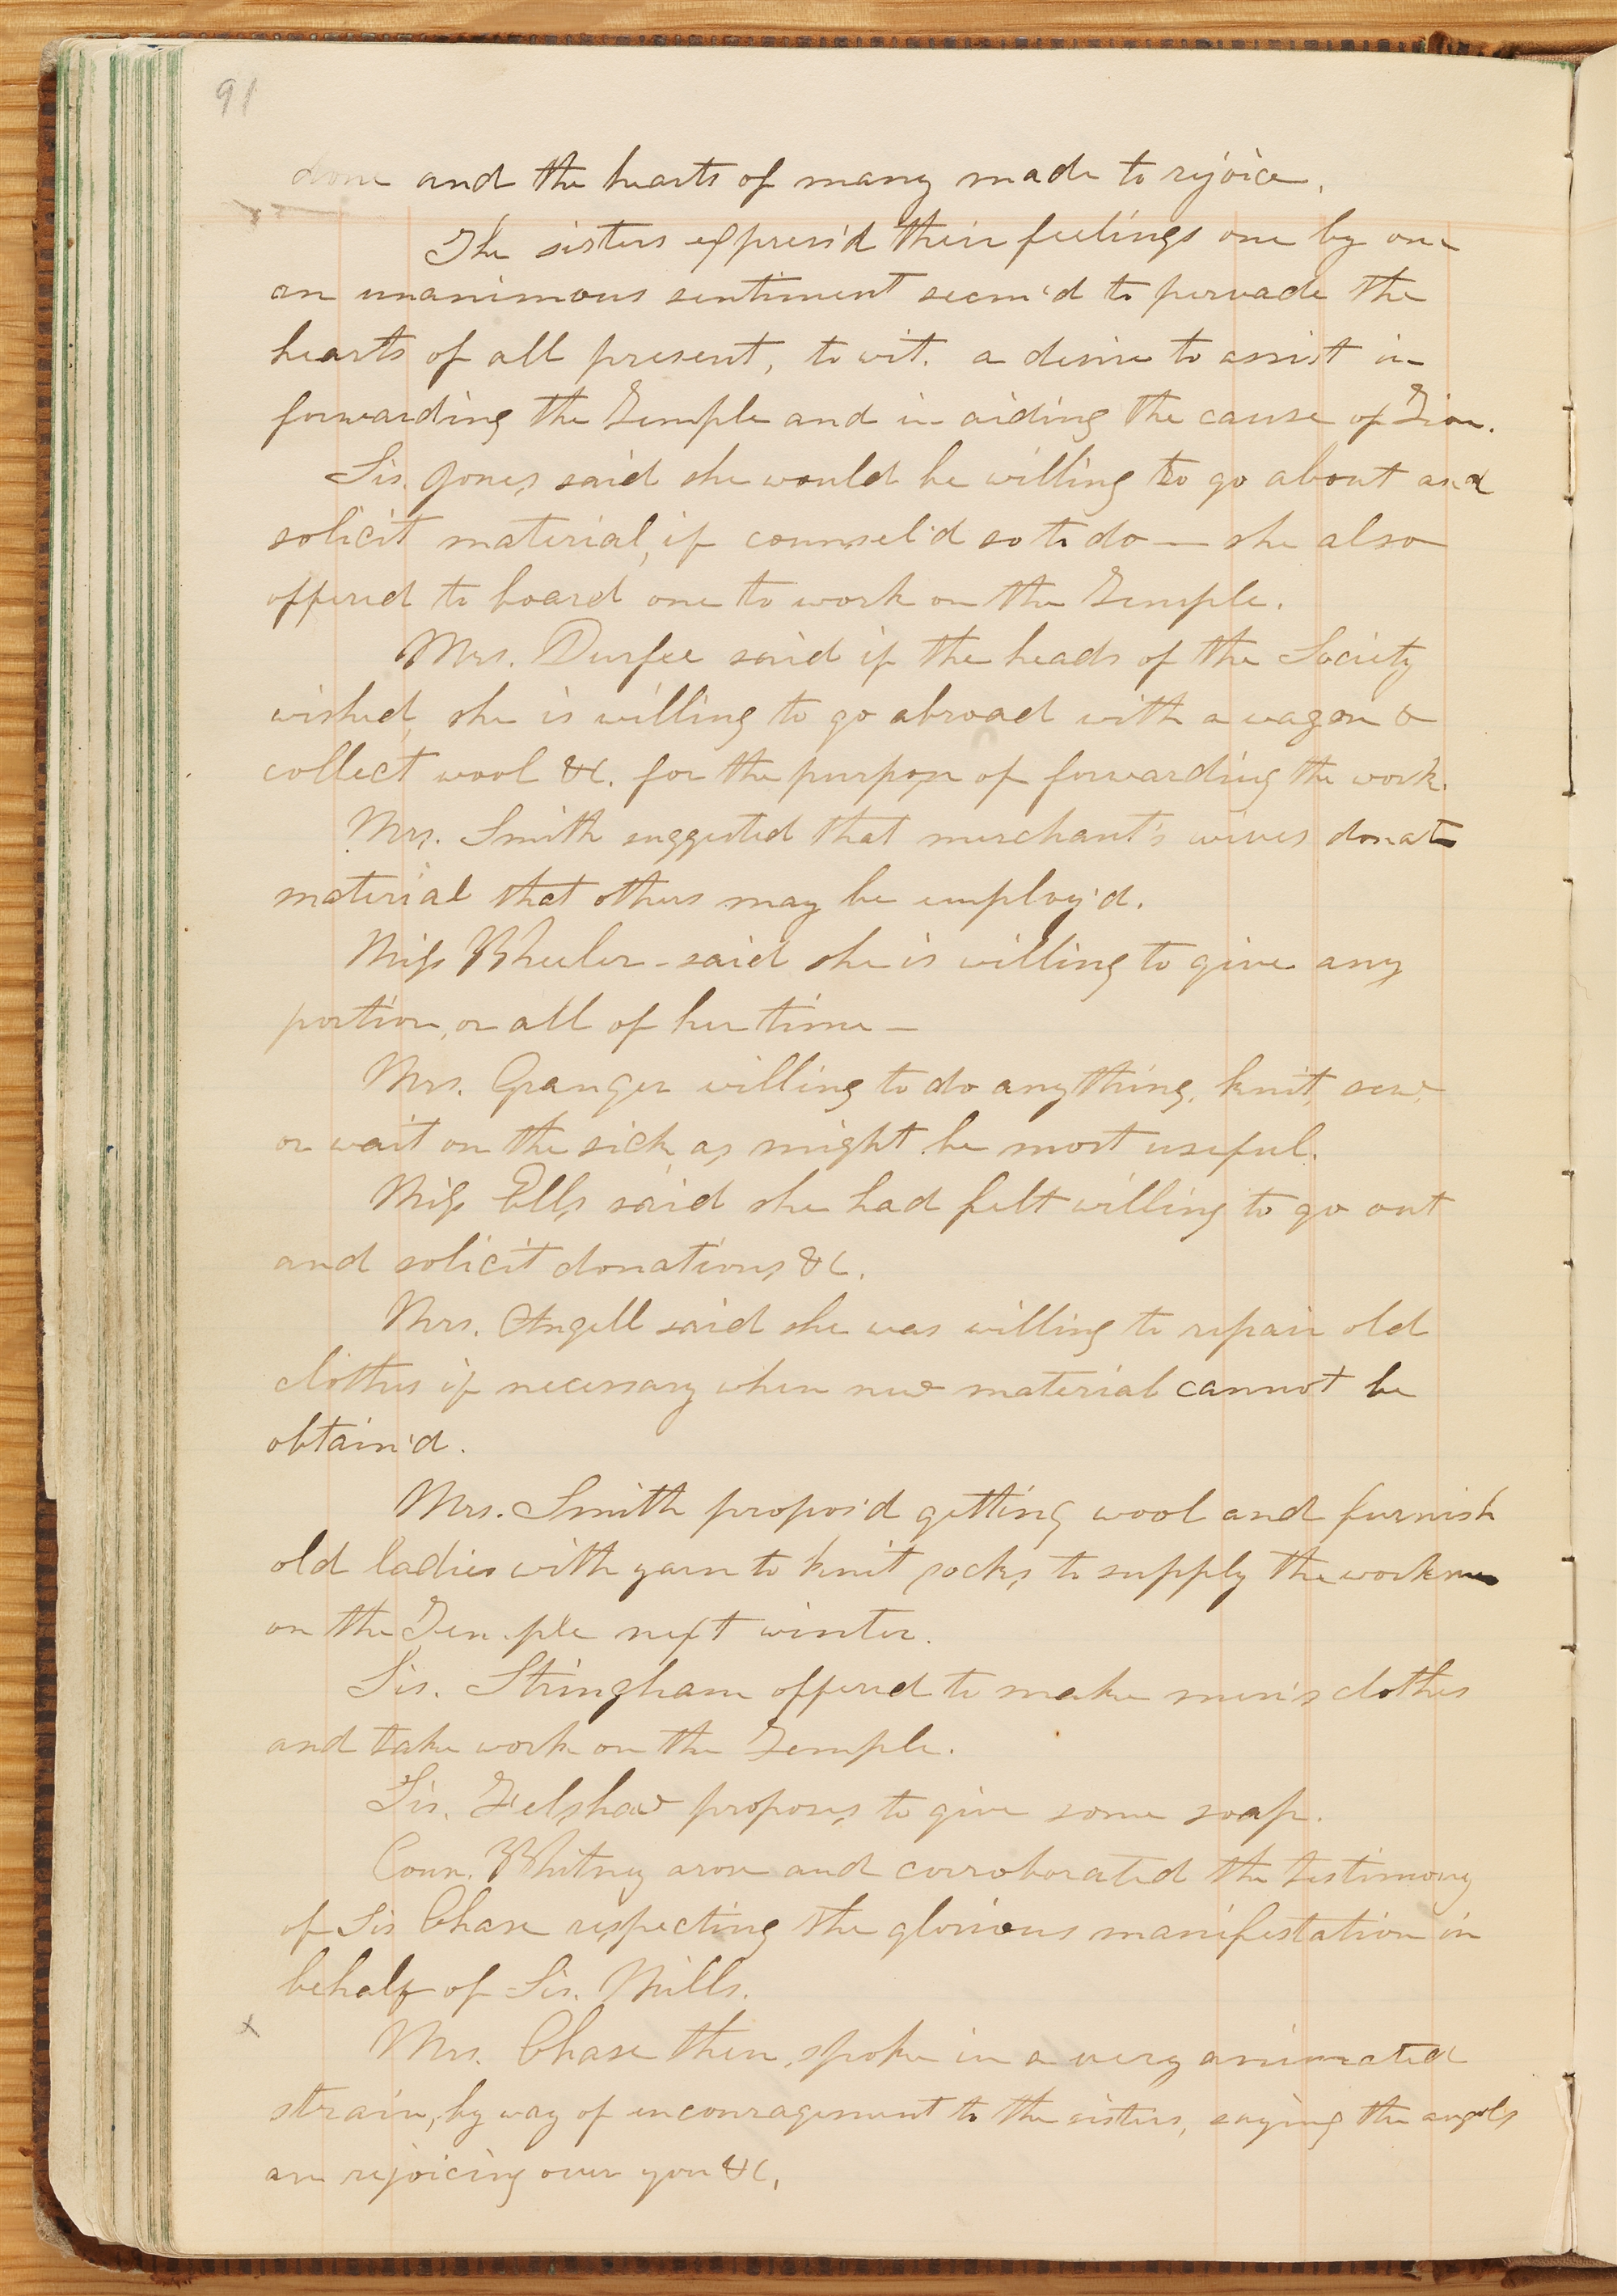 91
done and the hearts of many made to rejoice.
The sisters express'd their feelings one by one
an unanimous sentiment seem'd to pervade the
hearts of all present, to wit. a desire to assist in
forwarding the Temple and in aiding the cause of Zion.
Sis. Jones said she would be willing to go about and
solicit material, if counsel'd so to do — she also
offered to board one to work on the Temple.
Mrs. Durfee said if the heads of the Society
wished, she is willing to go abroad with a wagon &
collect wool &c. for the purpose of forwarding the work.
Mrs. Smith suggested that merchant's wives donate
material that others may be employ'd.
Miss Wheeler - said she is willing to give any
portion, or all of her time —
Mrs. Granger willing to do anything, knit, sew,
or wait on the sick, as might be most useful.
Miss Ells said she had felt willing to go out
and solicit donations &c.
Mrs. Angell said she was willing to repair old
clothes if necessary when new material cannot be
obtain'd.
Mrs. Smith propos'd getting wool and furnish
old ladies with yarn to knit socks to supply the workmen
on the Temple next winter.
Sis. Stringham offered to make men's clothes
and take work on the Temple.
Sis. Felshaw proposes to give some soap.
Coun. Whitney arose and corroborated the testimony
of Sis Chase respecting the glorious manifestation in
behalf of Sis. Mills.
x
Mrs. Chase then spoke in a very animated
strain, by way of encouragement to the sisters, saying the angels
are rejoicing over you &c.